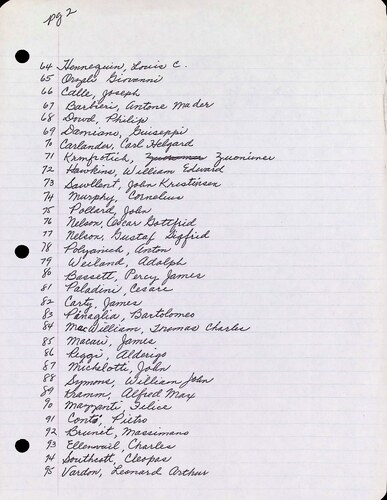 pg 2
64 Hennequin, Louis C.
65 Orzali Giovanni
66 Calle, Joseph
67 Barbieri, Antone Mader
68 Dowd, Philip
69 Damiano, Guiseppi
70 Carlander, Carl Helgard
71 Zuonimer
72 Hawkins, William Edward
73 Sawllent, John Kristinsen
74 Murphy, Cornelius
75 Pollard, John
76 Nelson, Oscar Gottfrid
77 Nelson, Gustaf Sigfrid
78 Polyanich, Anton
79 Weiland, Adolph
80 Bassett, Percy James
81 Paladini, Cesare
82 Carty, James
83 Panaglia, Bartolomeo
84 MacWilliam, Thomas Charles
85 Macari, James
86 Piggi, Alderigo
87 Michelotti, John
88 Symons, William John
89 Kramm, Alfred Max
90 Mazzanti, Felice
91 Conto, Pietro
92 Brunit, Massimano
93 Ellenvail, Charles
94 Southcott, Cleopas
95 Vardon, Leonard Arthur